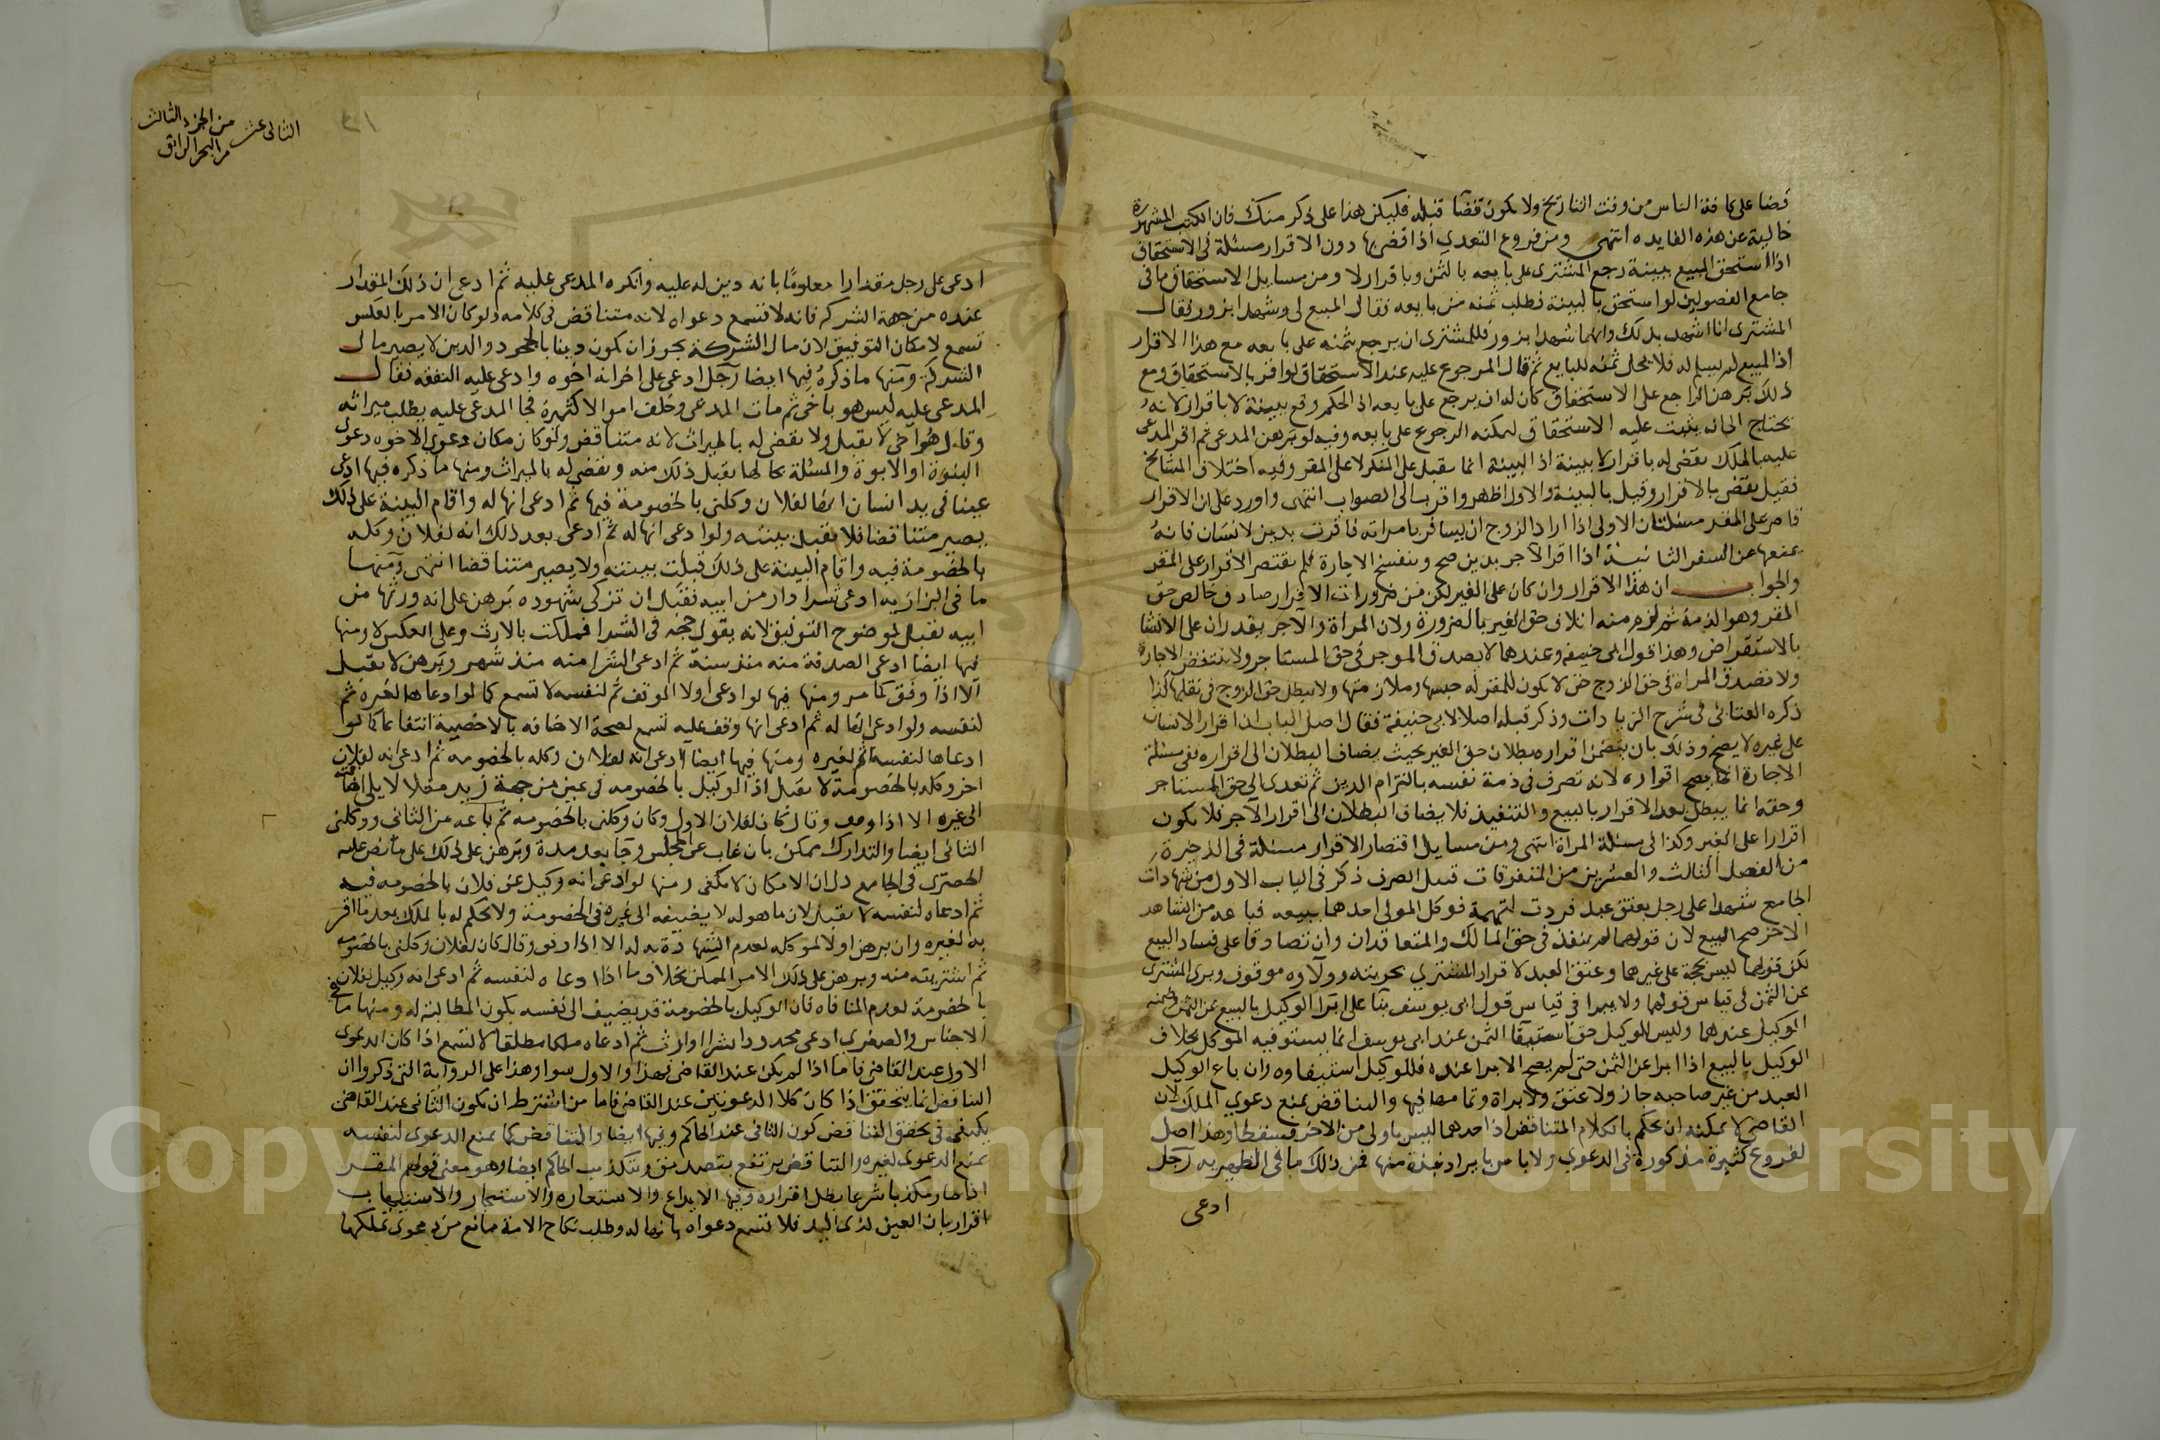 قضا على كافة الناس من وقت التاريخ ولا يكون قضا قبله فليكن هذا على ذكر منك فان الكتب المشهورة
خالية عن هذه الفايده انتهى ومن فروع التعدي اذا قضى بها دون الاقرار مسئلة في الاستحقاق
اذا استحق المبيع ببينة رجع المشترى على بايعه بالثمن وباقرار لا ومن مسايل الاستحقاق ما فى
جامع الفصولين لو استحق بالبينة فطلب ثمنه من بايعه فقال المبيع لى وشهدا بزور فقال
المشترى انا اشهد بذلك وانهما شهدا بزور فللمشترى ان يرجع بثمنه على بايعه مع هذا الاقرار
اذ المبيع لم يسلم له فلا يحل ثمنه للبايع ثم قال المرجوع عليه عند الاستحقاق لو اقر بالاستحقاق ومع
ذلك برهن الراجع على الاستحقاق كان له ان يرجع على بايعه اذ الحكم وقع ببينة لا باقرار لانه
يحتاج الى ان يثبت عليه الاستحقاق ليمكنه الرجوع على بايعه وفيه لو برهن المدعى ثم اقر المدعى
عليه بالملك يقضى له باقرار لا ببينة اذ البينة انما تقبل على المنكر لا على المقر وفيه اختلاف المشايخ
فقيل يقضى بالاقرار وقيل بالبينة والاول اظهر واقرب الى الصواب انتهى واورد على ان الاقرار
قاصر على المقر مسئلتان الاولى اذا اراد الزوج ان يسافر بامراته فاقرت بدين لانسان فانه
يمنعها عن السفر الثانية اذا اقر الآجر بدين صح وينفسخ الاجارة فلم يقتصر الاقرار على المقر
والجواب ان هذا الاقرار وان كان على الغير لكن من ضرورات الاقرار صادف خالص حق
المقر وهو الذمة ثم لزم منه اتلاف حق الغير بالضرورة ولان المراة والآجر يقدران على الانشا
بالاستقراض وهذا قول ابى حنيفه وعندهما لا يصدق الموجر فى حق المستاجر ولا تنتقض الاجارة
ولا تصدق المراة فى حق الزوج حتى لا يكون للمقر له حبسها وملازمتها ولا يبطل حق الزوج فى نقلها كذا
ذكره العتابى فى شرح الزيادات وذكر قبله اصلا لابى حنيفة فقال اصل الباب ان اقرار الانسان
على غيره لا يصح وذلك بان يتضمن اقراره بطلان حق الغير بحيث يضاف البطلان الى اقراره ففى مسئلة
الاجارة انما يصح اقراره لانه تصرف فى ذمة نفسه بالتزام الدين ثم تعدى الى حق المستاجر
وحقه انما يبطل بعد الاقرار بالبيع والتنفيذ فلا يضاف البطلان الى اقرار الآجر فلا يكون
اقرارا على الغير وكذا فى مسئلة المراة انتهى ومن مسايل اقتصار الاقرار مسئلة فى الذخيرة
من الفصل الثالث والعشرين من المتفرقات قبيل الصرف ذكر فى الباب الاول من شهادات
الجامع شهدا على رجل بعتق عبد فردت لتهمة فوكل المولى احدهما ببيعه فباعه من الشاهد
الاخر صح البيع لان قولهما لم ينفذ فى حق المالك والمتعاقدان وان تصادقا على فساد البيع
لكن قولهما ليس بحجة على غيرهما وعتق العبد لاقرار المشترى بحريته وولاوه موقوف وبرى المشترى
عن الثمن فى قياس قولهما ولا يبرا فى قياس قول ابى يوسف بنا على ابرا الوكيل بالبيع عن الثمن
الموكيل عندهما وليس للوكيل حق استيفا الثمن عند ابى يوسف انما يستوفيه الموكل بخلاف
الوكيل بالبيع اذا ابرا عن الثمن حتى لم يصح الابرا عنده فللوكيل استيفاوه وان باع الوكيل
العبد من غير صاحبه جاز ولا عتق ولا براة وتمامها فيها والتناقض يمنع دعوي الملك لان
القاضى لا يمكنه ان يحكم بالكلام المتناقض اذ احدهما ليس باولى من الاخر فسقطا وهذا اصل
لفروع كثيرة مذكورة فى الدعوى ولا باس بايراد نبذة منها فمن ذلك ما فى الظهيريه رجل
ادعى
الثانى عشر من الجزء الثالث
من البحر الرائق
ادعى على رجل مقدارا معلوما بانه دين له عليه وانكره المدعى عليه ثم ادعى ان ذلك المقدار
عنده من جهة الشركه فانه لا تسمع دعواه لانه متناقض فى كلامه ولو كان الامر بالعكس
تسمع لامكان التوفيق لان مال الشركة يجوز ان يكون دينا بالجحود والدين لا يصير مال
الشركة ومنها ما ذكره فيها ايضا رجل ادعى على اخر انه اخوه وادعى عليه النفقه فقال
المدعى عليه ليس هو باخى ثم مات المدعى وخلف اموالا كثيرة فجا المدعى عليه يطلب ميراثه
وقال هو اخى لا يقبل ولا يقضى له بالميراث لانه متناقض ولو كان مكان دعوى الاخوه دعوى
البنوة او الابوة والمسئلة بحالها يقبل ذلك منه ويقضى له بالميراث ومنها ما ذكره فيها ادعى
عينا فى يد انسان انها لفلان وكلنى بالخصومة فيها ثم ادعى انها له واقام البينة على ذلك
يصير متناقضا فلا تقبل بينته ولو ادعى انها له ثم ادعى بعد ذلك انه لفلان وكله
بالخصومة فيه واقام البينة على ذلك قبلت بينته ولا يصير متناقضا انتهى ومنها
ما فى البزازيه ادعى شرا دار من ابيه فقبل ان تزكى شهوده برهن على انه ورثها من
ابيه تقبل لوضوح التوفيق لانه يقول جحد فى الشرا فملكت بالارث وعلى العكس لا ومنها
فيها ايضا ادعى الصدقة منه منذ سنة ثم ادعى الشرا منه منذ شهر وبرهن لا يقبل
الا اذا وفق كما مر ومنها فيها لو ادعى اولا الوقف ثم لنفسه لا تسمع كما لو ادعاها لغيره ثم
لنفسه ولو ادعى انها له ثم ادعى انها وقف عليه تسمع لصحة الاضافه بالاخصية انتفاعا كما لو
ادعاها لنفسه ثم لغيره ومنها فيها ايضا ادعى انه لفلان وكله بالخصومه ثم ادعى انه لفلان
اخر وكله بالخصومة لا يقبل اذ الوكيل بالخصومه فى عين من جهة زيد مثلا لا يلى اضافته
الى غيره الا اذا وفق وقال كان لفلان الاول وكان وكلنى بالخصومه ثم باعه من الثانى ووكلنى
الثانى ايضا والتدارك ممكن بان غاب عن المجلس وجا بعد مدة وبرهن على ذلك على ما نص عليه
الحصيرى فى الجامع دل ان الامكان لا يكفى ومنها لو ادعى انه وكيل عن فلان بالخصومه فيه
ثم ادعاه لنفسه لا يقبل لان ما هو له لا يضيفه الى غيره فى الخصومة ولا يحكم له بالملك بعد ما اقر
به لغيره وان برهن اولا لموكله لعدم الشهادة به له الا اذا وفق وقال كان لفلان وكلنى بالخصومه
ثم اشتريته منه وبرهن على ذلك الامر الممكن بخلاف ما اذا ادعاه لنفسه ثم ادعى انه وكيل لفلان
بالخصومة لعدم المنافاه فان الوكيل بالخصومة قد يضيف الى نفسه بكون المطالبة له ومنها ما فى
الاجناس والصغرى ادعى محدودا بشرا او ارث ثم ادعاه ملكا مطلقا لا تسمع اذا كان الدعوى
الاول عند القاضى فاما اذا لم يكن عند القاضى فهذا والاول سوا وهذا على الرواية التى ذكروا ان
التناقض انما يتحقق اذا كان كلا الدعويين عند القاضى فاما من اشترط ان يكون الثانى عند القاضى
يكتفى فى تحقق التناقض كون الثانى عند الحاكم وفيها ايضا والتناقض كما يمنع الدعوى لنفسه
يمنع الدعوى لغيره والتناقض يرتفع بتصديق وبتكذيب الحاكم ايضا وهو معنى قولهم المقر
اذا صار مكذبا شرعا بطل اقراره وفيها الايداع والاستعاره والاستيجار والاستيهاب
اقرار بان العين لذى اليد فلا تسمع دعواه بانها له وطلب نكاح الامة مانع من دعوى تملكها
Copyright © King Saud University